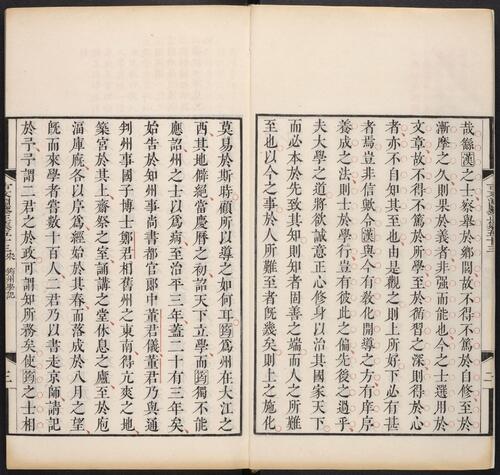 哉繇漢之士察舉於鄉閭故不得不篤於自修至於
漸摩之久則果於義者非強而能也今之士選用於
文章故不得不篤於所學至於循習之深則得於心
者亦不自知其至也由是觀之則上所好下必有甚
者焉豈非信歟令漢與今有敎化開導之方有庠序
養成之法則士於學行豈有彼此之偏先後之過乎
夫大學之道將欲誠意正心修身以治其國家天下
而必本於先致其知則知者固善之端而人之所難
至也以今之事於人所難至者旣幾矣則上之施化
莫易於斯時顧所以導之如何耳筠爲州在大江之
西其地僻絕當慶曆之初詔天下立學而筠獨不能
應詔州之士以爲病至治平三年蓋二十有三年矣
始告於知州事尚書都官郎中董君儀董君乃與通
判州事國子博士鄭君相舊州之東南得亢爽之地
築宮於其上齋祭之室誦講之堂休息之廬至於庖
湢庫廐各以序爲經始於其春而落成於八月之望
旣而來學者嘗數十百人二君乃以書走京師請記
於予予謂二君之於政可謂知所務矣使筠之士相
筠州學記
三